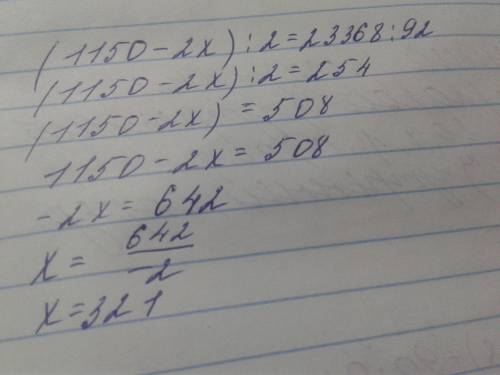 (1150-2x):2=23368:92
(1150-2x):2=254
(1150-2x)=508
1150-2x=508
-2x=642
x=642/-2
x=321